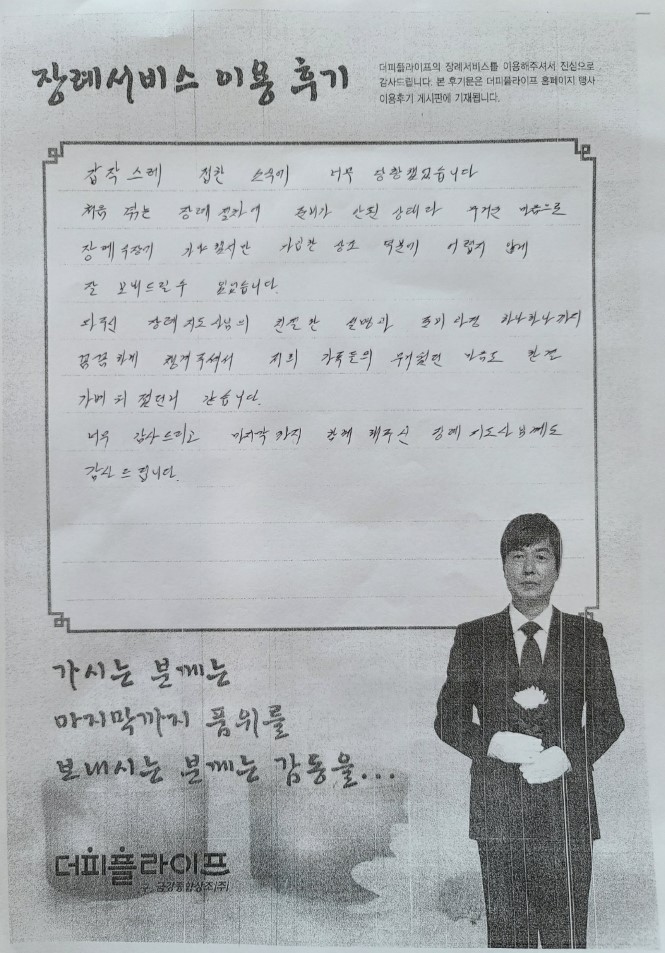 장례서비스 이용 후기
더피플라이프의 장례서비스를 이용해주셔서 진심으로
감사드립니다. 본 후기문은 더피플라이프 홈페이지 행사
이용후기 게시판에 기재됩니다.
갑작스레 접한 소식에 너무 당황했었습니다
처음 겪는 장례 절차에 준비가 안된 상태라 무거운 마음으로
장례식장에 가입한 상조 덕분에 어렵지 않게
잘 보내드릴수 있었습니다.
장례지도사님의 친절한 설명과 하나하나까지
꼼꼼하게 챙겨주셔서 저희 가족들의 무거웠던 마음도 한결
가벼워 졌던거 같습니다.
너무 감사드리고 마지막까지 함께 해주신 장례지도사분께도
감사드립니다.
가시는 분께는
마지막까지 품위를
보내시는 분께는 감동을...
더피플라이프
구. 금강종합상조(주)